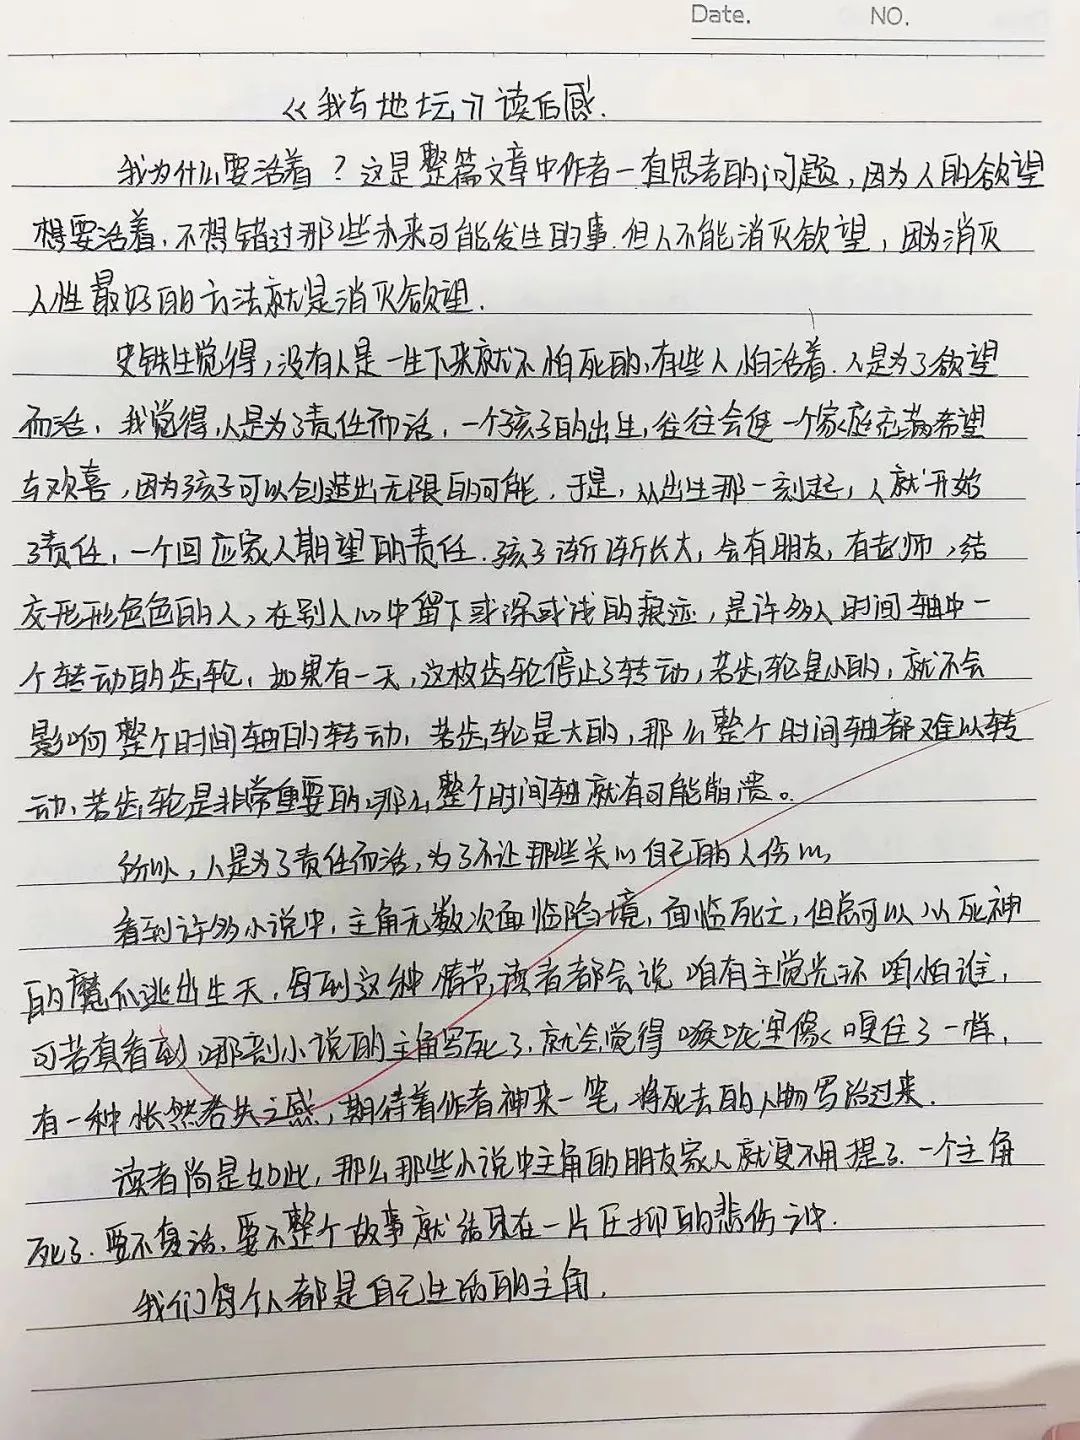 Date.  NO.
《我与地坛》读后感.
我为什么要活着？这是整篇文章中作者一直思考的问题，因为人的欲望
想要活着，不想错过那些未来可能发生的事.但人不能消灭欲望，因为消灭
人性最好的方法就是消灭欲望.
史铁生觉得，没有人是一生下来就不怕死的，有些人怕活着.人是为了欲望
而活，我觉得，人是为了责任而活，一个孩子的出生，往往会使一个家庭充满希望
与欢喜，因为孩子可以创造出无限的可能，于是，从出生那一刻起，人就开始
了责任，一个回应家人期望的责任.孩子渐渐长大，会有朋友，有老师，结
交形形色色的人，在别人心中留下或深或浅的痕迹，是许多人时间轴中一
个转动的齿轮，如果有一天，这枚齿轮停止了转动，若齿轮是小的，就不会
影响整个时间轴的转动，若齿轮是大的，那么整个时间轴都难以转
动，若齿轮是非常重要的，那么整个时间轴就有可能崩溃。
所以，人是为了责任而活，为了不让那些关心自己的人伤心，
看到许多小说中，主角无数次面临险境，面临死亡，但总可以从死神
的魔爪逃出生天，每到这种情节，读者都会说 咱有主觉光环 咱怕谁，
可若真看到哪部小说的主角写死了，就会觉得喉咙里像哽住了一样，
有一种怅然若失之感，期待着作者神来一笔，将死去的人物写活过来.
读者尚是如此，那么那些小说中主角的朋友家人就更不用提了.一个主角
死了.要不复活，要不整个故事就结束在一片压抑的悲伤中.
我们每个人都是自己生活的主角.